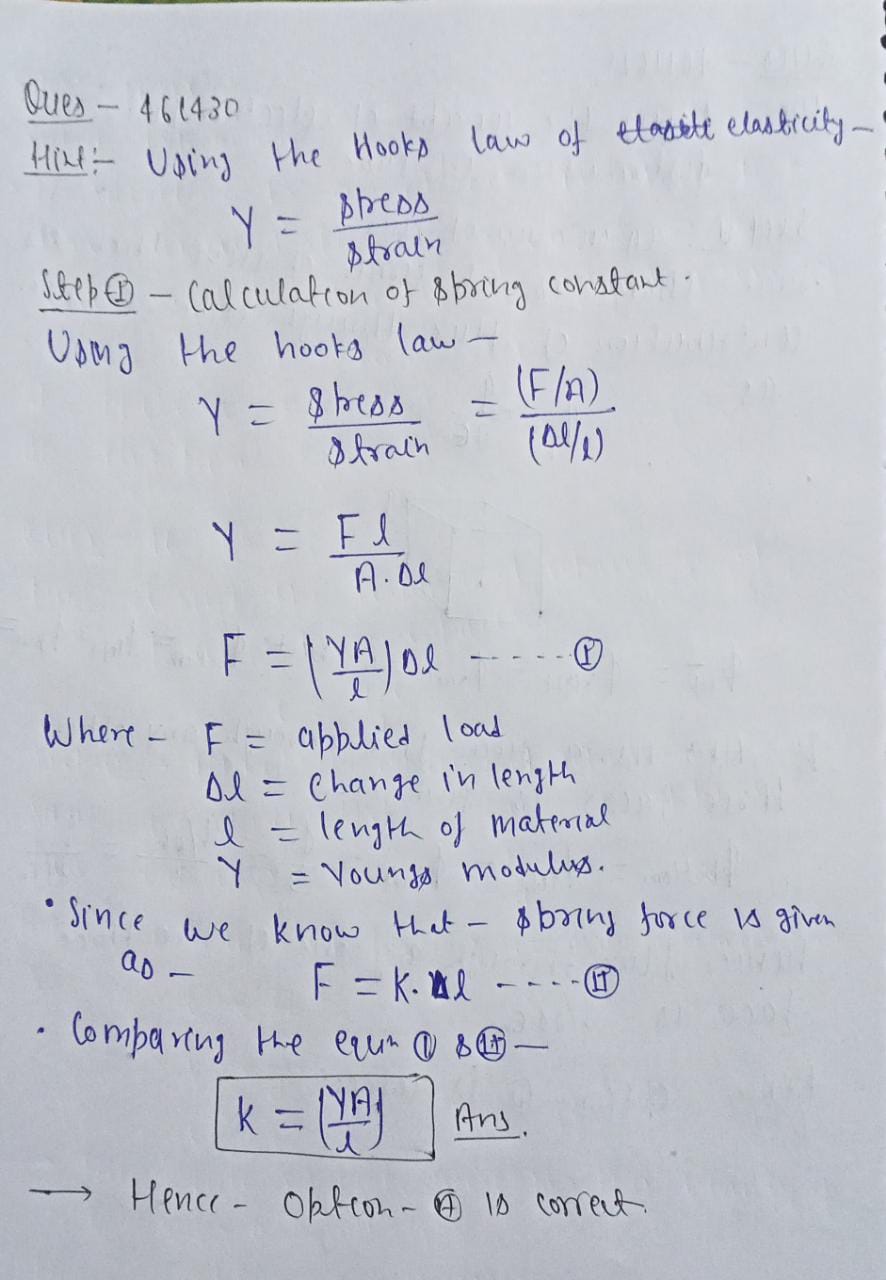 Ques - 461430
Hint:- Using the Hooks law of elasticity -
Y = stress / strain
Step I - Calculation of spring constant.
Using the hooks law -
Y = stress / strain = (F/A) / (Δl/l)
Y = Fl / A.Δl
F = (YA / l) Δl ----- I
Where - F = applied load
Δl = Change in length
l = length of material
Y = Youngs modulus.
• Since we know that - spring force is given
as - F = K.Δl ---- II
• Comparing the equn I & II -
K = (YA / l) Ans.
→ Hence - Option - is correct.